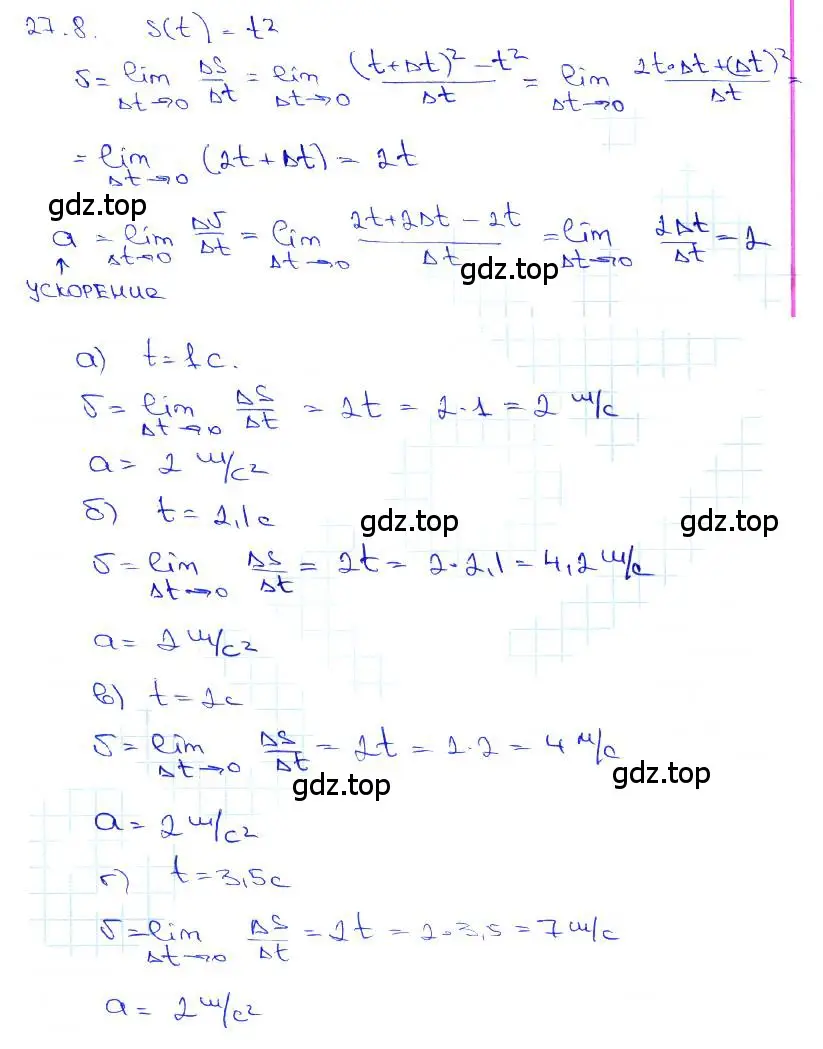 27.8. S(t) = t²
υ = lim Δt→0 ΔS/Δt = lim Δt→0 ((t+Δt)² − t²)/Δt = lim Δt→0 (2t·Δt + (Δt)²)/Δt =
= lim Δt→0 (2t + Δt) = 2t
gdz.top
a = lim Δt→0 Δυ/Δt = lim Δt→0 (2t + 2Δt − 2t)/Δt = lim Δt→0 2Δt/Δt = 2
gdz.top
↑
УСКОРЕНИЕ
а) t = 1 с.
υ = lim Δt→0 ΔS/Δt = 2t = 2·1 = 2 м/с
a = 2 м/с²
б) t = 2,1 с
gdz.top gdz.top
υ = lim Δt→0 ΔS/Δt = 2t = 2·2,1 = 4,2 м/с
a = 2 м/с²
в) t = 2с
υ = lim Δt→0 ΔS/Δt = 2t = 2·2 = 4 м/с
gdz.top gdz.top
a = 2 м/с²
г) t = 3,5с
υ = lim Δt→0 ΔS/Δt = 2t = 2·3,5 = 7 м/с
a = 2 м/с²